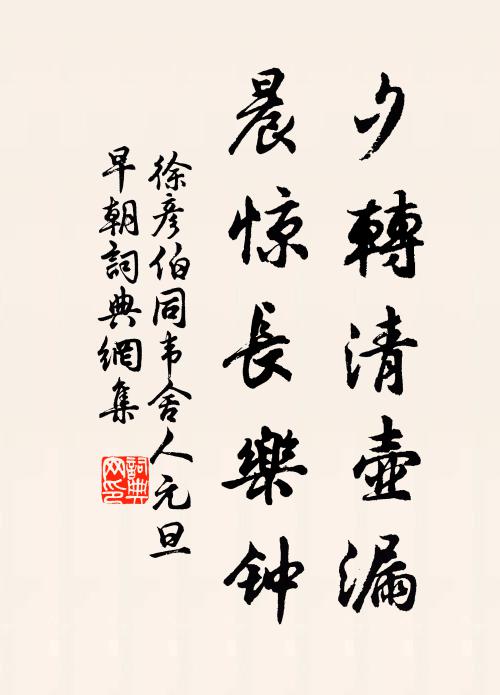 夕轉清壺漏
晨惊長樂钟
徐彦伯同韦舍人元旦
早朝詞典網集
詞典
网印